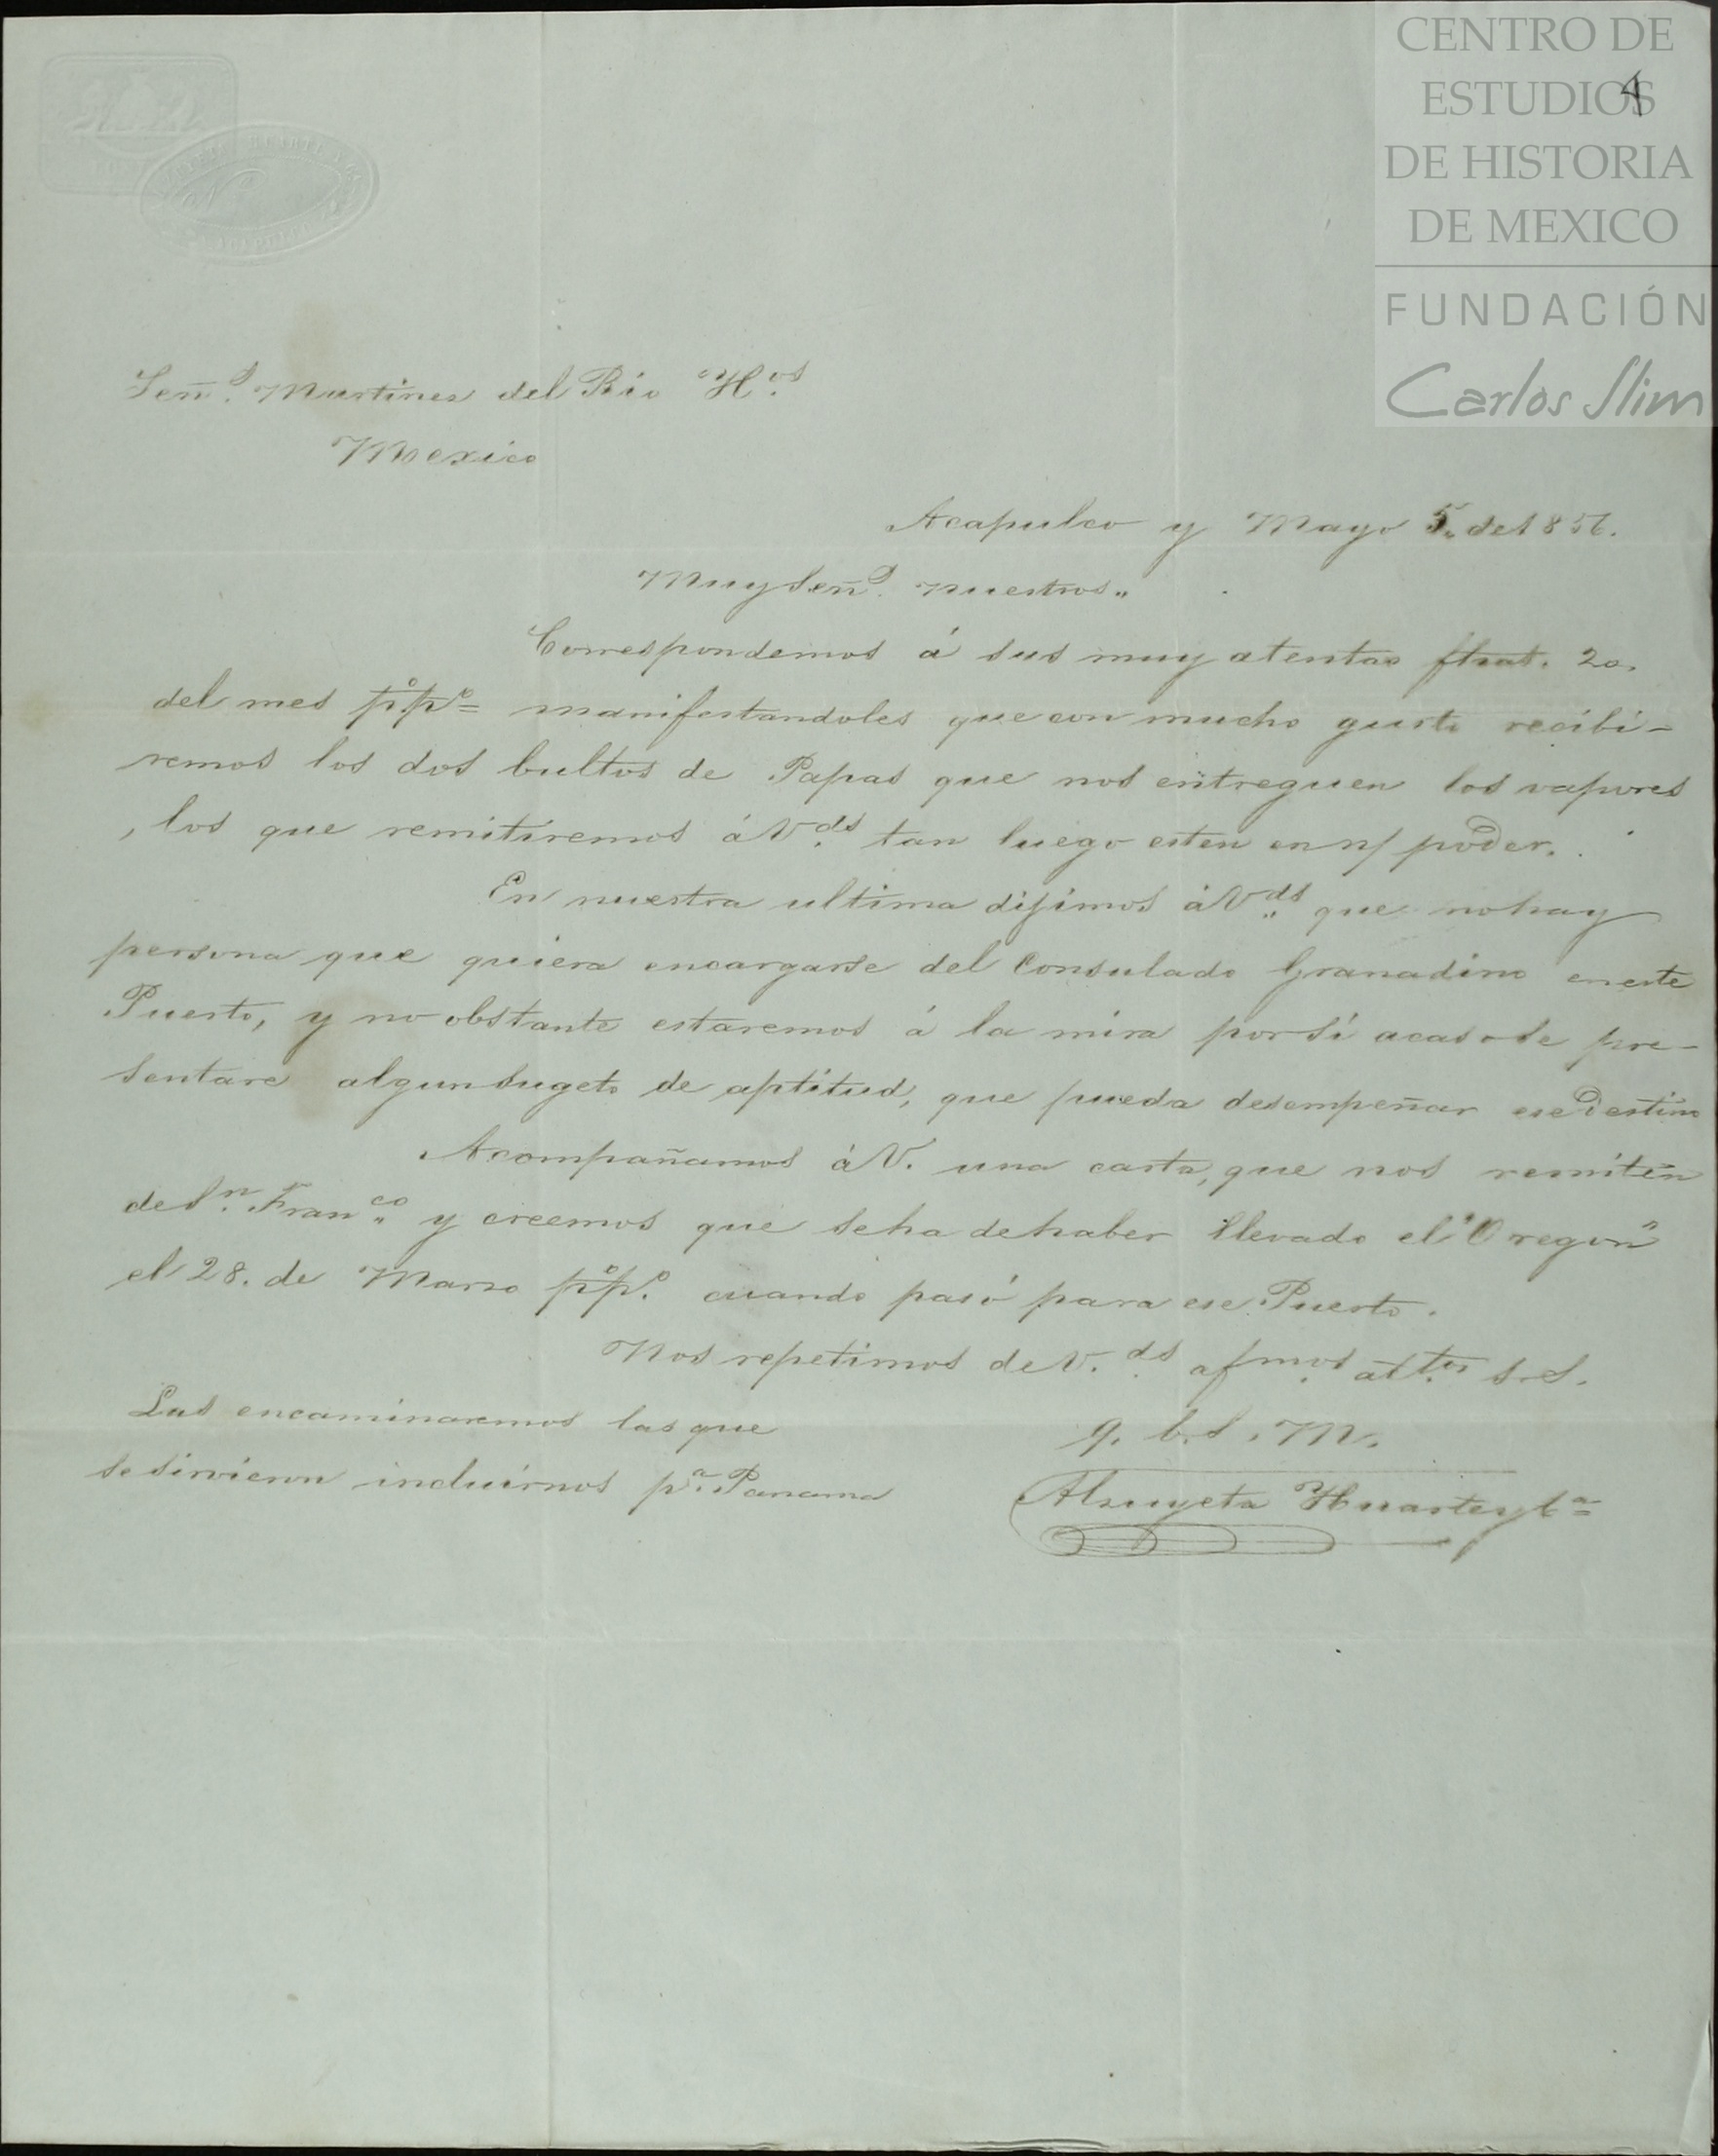 CENTRO DE
ESTUDIOS
DE HISTORIA
DE MEXICO
FUNDACIÓN
Carlos Slim
4
Señ.s Martines del Rio H.os
Mexico
Acapulco y Mayo 5„ de 1856.
Muy Señ.s nuestros„
Correspondemos á sus muy atentas fhas. 20.
del mes p.º p.º manifestandoles que con mucho gusto recibi-
remos los dos bultos de Papas que nos entreguen los vapores
, los que remitiremos á V.ds tan luego esten en n/ poder.
En nuestra ultima dijimos á V.ds que no hay
persona que quiera encargarse del Consulado Granadino en este
Puerto, y no obstante estaremos á la mira por si acaso se pre-
sentare algun sugeto de aptitud, que pueda desempeñar ese destino
Acompañamos á V. una carta, que nos remiten
de S.n Fran.co y creemos que se ha de haber llevado el "Oregon"
el 28. de Marzo p.º p.º cuando pasó para ese Puerto.
Nos repetimos de V.ds af.mos att.os s.s.
q. b. s. M.
Alzuyeta Huarte y C.a
Las encaminaremos las que
se sirvieron incluirnos p.a Panama